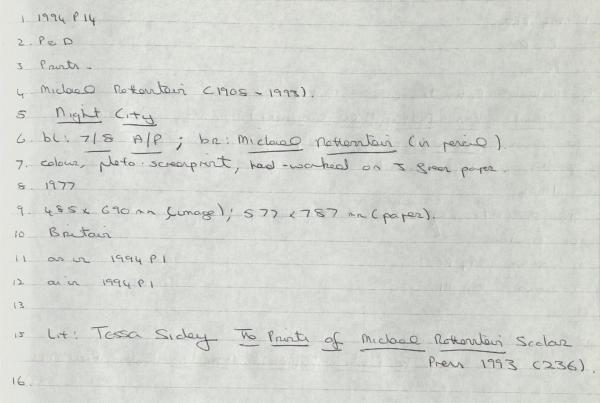 1. 1994 P 14
2. P & D
3 Prints -
4 Michael Rothenstein (1908 - 1993).
5 Night City
6. bl: 7/8 A/P ; br: Michael Rothenstein (in pencil).
7. colour, photo-screenprint, hand-worked on J Green paper.
8. 1977
9. 485 x 690 mm (image); 577 x 787 mm (paper).
10 Britain
11 as in 1994 P 1
12 as in 1994 P 1
13
15 Lit: Tessa Sidey The Prints of Michael Rothenstein Scolar
Press 1993 (236).
16.